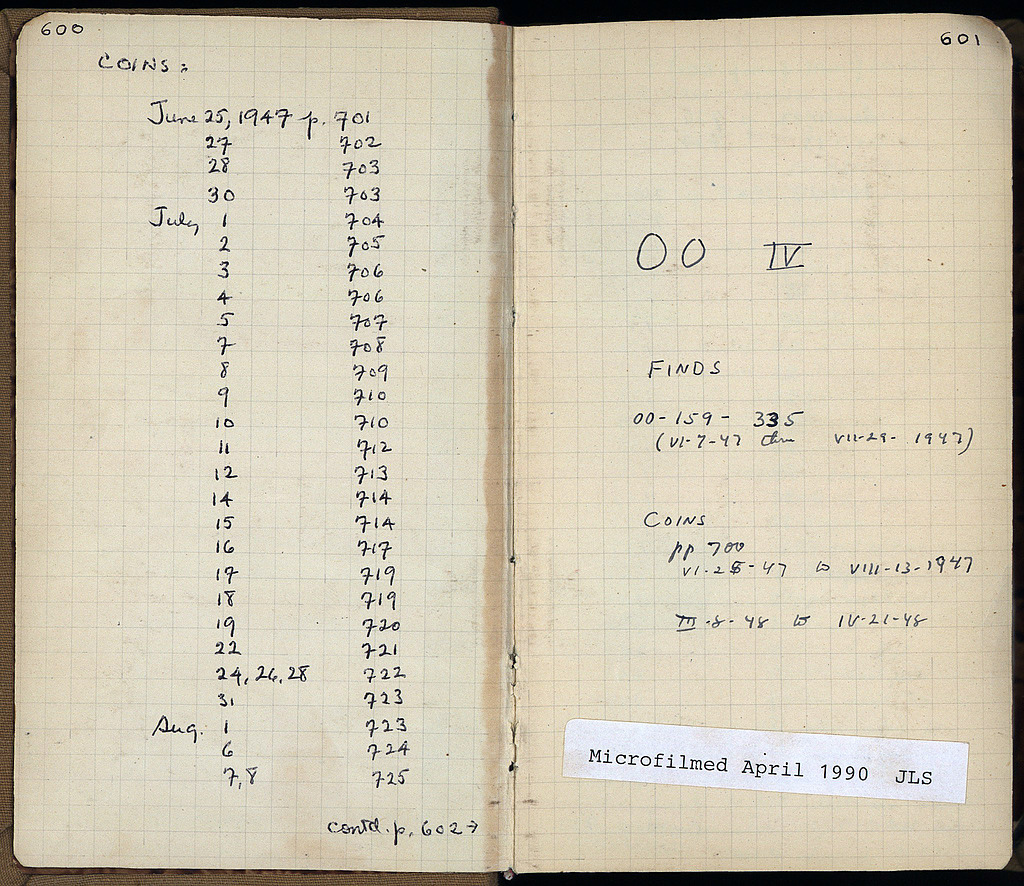 600
COINS:
June 25, 1947 p. 701
27 702
28 703
30 703
July 1 704
2 705
3 706
4 706
5 707
7 708
8 709
9 710
10 710
11 712
12 713
14 714
15 714
16 717
17 719
18 719
19 720
22 721
24, 26, 28 722
31 723
Aug. 1 723
6 724
7, 8 725
contd. p. 602 →
601
OO IV
FINDS
OO-159- 335
(VI-7-47 thru VII-29- 1947)
COINS
pp 700
VI-25-47 to VIII-13-1947
III-8-48 to IV-21-48
Microfilmed April 1990 JLS